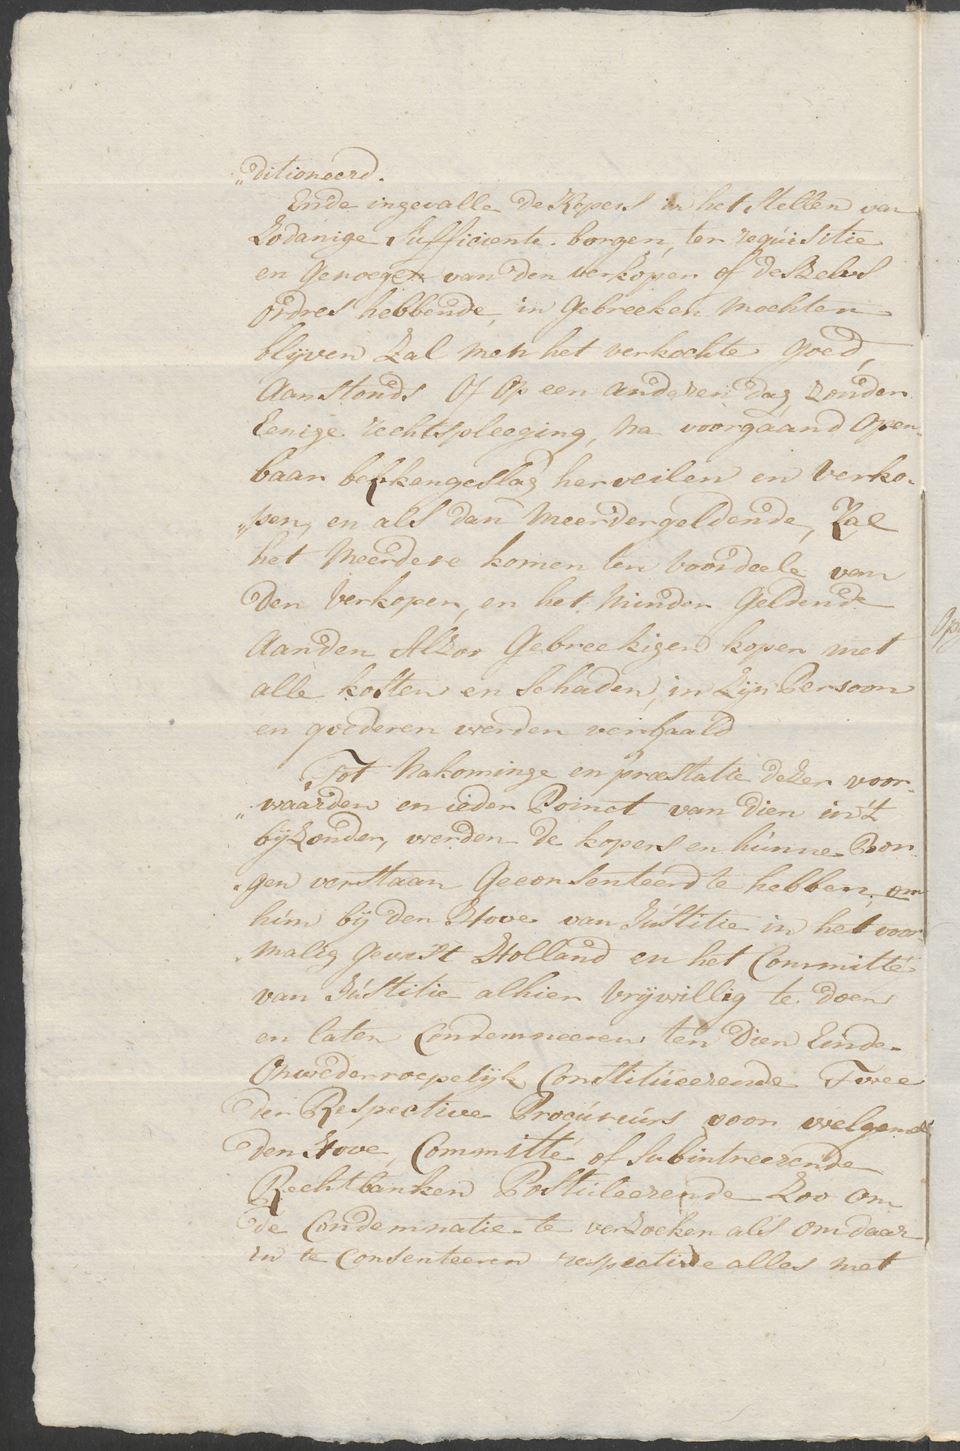 „ditioneerd.
Ende ingevalle de Kopers in het stellen van
Zodanige Sufficiente borgen, ter requisitie
en Genoegen van den verkoper of deszelvs
ordres hebbende, in Gebreeken mochten
blyven Zal men het verkochte goed,
aanstonds of op een anderen dag zonder
Eenige rechtspleeging, na voorgaand Open-
baar bekkengeslag herveilen en verko-
„pen, en als dan meerder geldende, Zal
het meerdere komen ten voordeele van
den Verkoper, en het minder Geldende
aan den Alzoo Gebreekigen koper met
alle kosten en schaden, in Zijn Persoon
en goederen werden verhaald
Tot Nakominge en præstatie dezer voor-
„waarden en ieder Poinct van dien in 't
byzonder, werden de kopers en húnne Bor-
gen verstaan Geconsenteerd te hebben, om
hún bij den Hove van Jústitie in het voor-
malig Gewest Holland en het Committé
van Jústitie alhier Vrijwillig te doen
en laten Condemneeren ten dien Einde
Onwederroepelijk Constitúeerende Twee
der Respective Procúreúrs voor welgemel
den Hove, Committé of Subintreerende
Rechtbanken Postúleerende Zoo om
de Condemnatie te verzoeken als om daar
in te Consenteeren respective alles met
Op